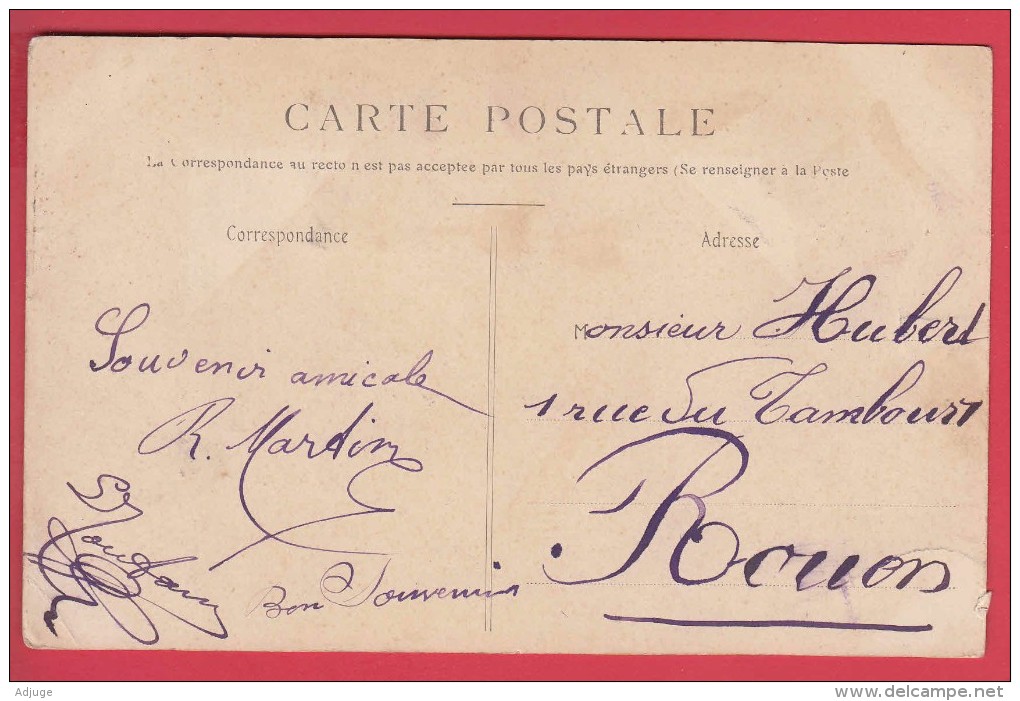 CARTE POSTALE
La Correspondance au recto n est pas acceptee par tous les pays étrangers (Se renseigner à la Poste
Correspondance
Adresse
Souvenir amicale
R. Martin
Bon Souvenir
Monsieur Hubert
1 rue du Tambour
Rouen
Adjuge
www.delcampe.net